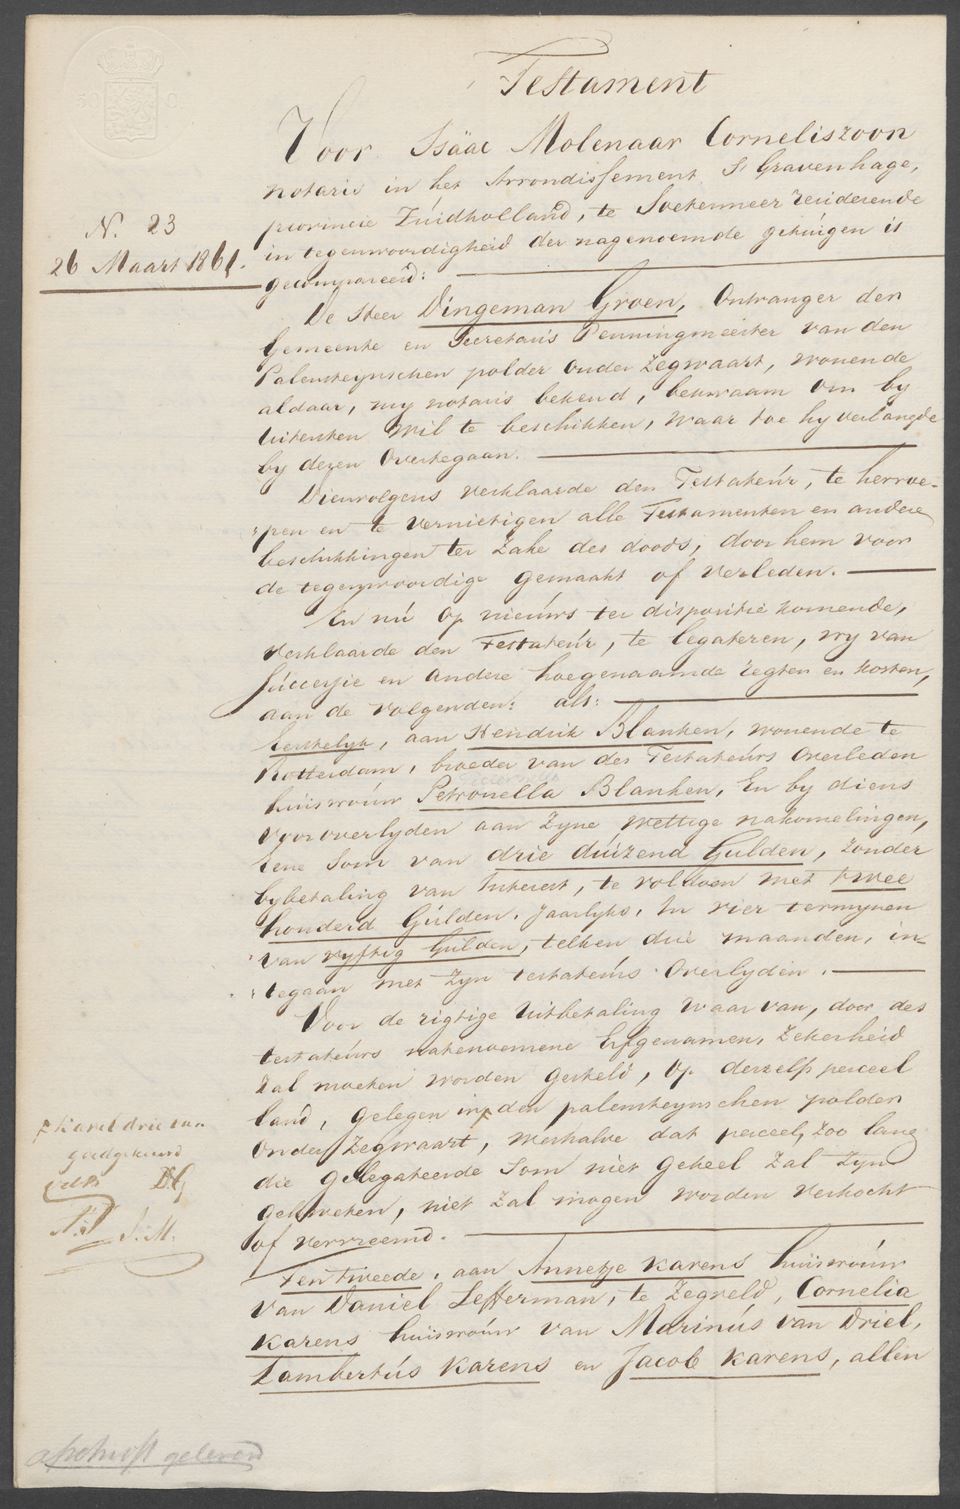 Testament
Voor Isäac Molenaar Corneliszoon
notaris in het Arrondissement 's Gravenhage,
provincie Zuidholland, te Soetermeer resideerende
in tegenwoordigheid der nagenoemde getuigen is
gecompareerd:
N. 23
26 Maart 1861.
De Heer Dingeman Groen, Ontvanger der
Gemeente en Secretaris Penningmeester van den
Palensteynschen polder onder Zegwaart, wonende
aldaar, my notaris bekend, bekwaam om by
Uitersten Wil te beschikken, waar toe hy verlangde
by dezen Overtegaan.
Dienvolgens verklaarde den Testateur, te herroe-
pen en te vernietigen alle Testamenten en andere
beschikkingen ter Zake des doods, door hem voor
de tegenwoordige gemaakt of verleden.
En nu op nieuws ter dispositie komende,
verklaarde den Testateur, te legateren, vry van
Successie en andere hoegenaamde regten en kosten,
aan de volgenden: als:
Eerstelyk, aan Hendrik Blanken, wonende te
Rotterdam, broeder van des Testateurs Overleden
huisvrouw Petronella Blanken, En by diens
Vooroverlyden aan Zyne Wettige nakomelingen,
Eene Som van drie duizend Gulden, zonder
bybetaling van Interest, te voldoen met twee
honderd Gulden, Jaarlyks, In vier termynen
van vyftig Gulden, telken drie maanden, in-
tegaan met Zyn testateurs Overlyden.
Voor de rigtige Uitbetaling waar van, door des
testateurs natenoemene Erfgenamen, Zekerheid
Zal moeten worden gesteld, op derzelfs perceel
land, gelegen in den palensteynschen polder
Onder Zegwaart, weshalve dat perceel, zoo lang
die gelegateerde Som niet geheel Zal Zyn
gekweten, niet Zal mogen worden verkocht
of vervreemd.
Karel drie van
goedgekeurd
DG
J. M.
Ten Tweede, aan Annetje Karens huisvrouw
van Daniel Lefferman, te Zegveld, Cornelia
Karens huisvrouw van Marinus van Driel,
Lambertus Karens en Jacob Karens, allen
afschrift geleverd